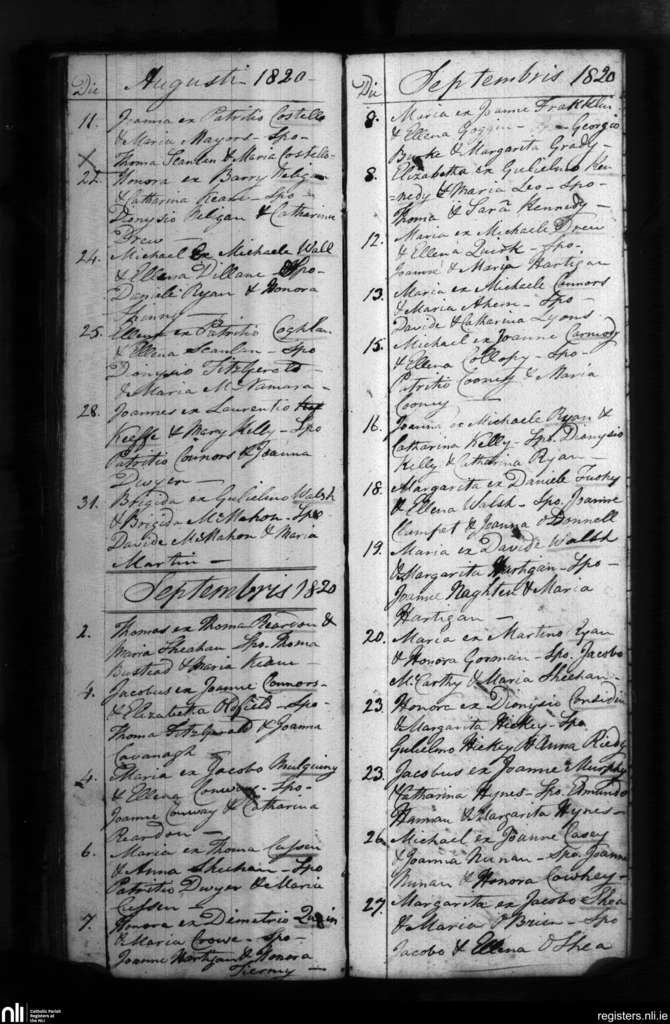 Die Augusti 1820
11. Joanna ex Patritio Costello
& Maria Mayors - Spo-
Thoma Scanlan & Maria Costello
X
22. Honora ex Barry Nelgan
& Catharina Keane - Spo
Dionysio Nelgan & Catharina
Drew -
24. Michael Ex Michaele Wall
& Ellena Dillane - Spo-
Daniele Ryan & Honora
25. Ellena ex Patritio Coghlan
& Ellena Scanlan - Spo
Dionysio Fitzgerald
& Maria McNamara -
28. Joannes ex Laurentio
Keeffe & Mary Kelly - Spo
Patritio Connors & Joanna
Dwyer -
31. Brigida ex Gulielmo Walsh
& Brigida McMahon - Spo
Davide McMahon & Maria
Martin -
Septembris 1820
2. Thomas ex Thoma Reardon &
Maria Sheahan Spo. Thoma
Bustead & Maria Keane -
4. Jacobus ex Joanne Connors -
& Elizabetha Oldfield - Spo-
Thoma Fitzgerald & Joanna
Cavanagh -
4. Maria ex Jacobo Mulquiny
& Ellena Conway - Spo-
Joanne Conway & Catharina
Reardon -
6. Maria ex Thoma Cussen
& Anna Sheehan - Spo
Patritio Dwyer & Maria
Cussen -
7. Honora ex Demetrio Quin
& Maria Crowe - Spo-
Joanne Hartigan & Honora
Tierny -
Die Septembris 1820
8. Maria ex Joanne Franklin
& Ellena Goggin - Georgio
Burke & Margarita Grady -
8. Elizabetha ex Gulielmo Ken
=nedy & Maria Leo - Spo-
Thoma & Sara Kennedy -
12. Maria ex Michaele Drew
& Ellena Quirk - Spo.
Joanne & Maria Hartigan
13. Maria ex Michaele Connors
& Maria Ahern - Spo
Davide & Catharina Lyons
15. Michael ex Joanne Carmody
& Ellena Collopy - Spo -
Patritio Cooney & Maria
Cooney -
16. Joanna ex Michaele Ryan &
Catharina Kelly - Spo. Dionysio
Kelly & Catharina Ryan -
18. Margarita ex Daniele
& Ellena Walsh - Spo. Joanne
& Joanna O Donnell
19. Maria ex Davide Walsh
& Margarita Hartigan - Spo -
Joanne Naghten & Maria
Hartigan -
20. Maria ex Martino Ryan
& Honora Gorman - Spo. Jacobo
McCarthy & Maria Sheehan -
23. Honora ex Dionysio Considin
& Margarita Hickey - Spo
Gulielmo Hickey & Anna Riedy
23. Jacobus ex Joanne Murphy
& Catharina Hynes - Spo. Edmundo
& Margarita Hynes -
26. Michael ex Joanne Casey
& Joanna Nunan - Spo. Joanne
Nunan & Honora Cowhey -
27. Margarita ex Jacobo Shea
& Maria O Brien - Spo
Jacobo & Ellena O Shea
nli Catholic Parish
Registers at
the NLI
registers.nli.ie